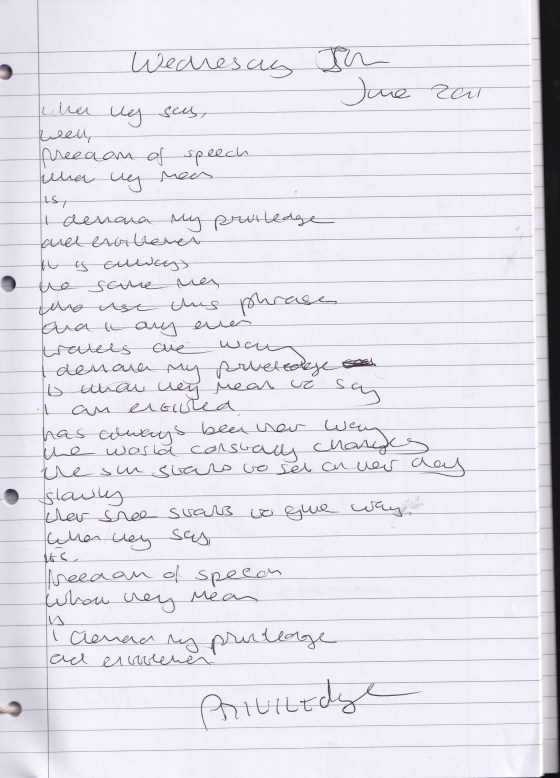 Wednesday 15th
June 2011
when they say,
well,
freedom of speech
what they mean
is,
I demand my priviledge
and entitlement
it is always
the same men
who use this phrase
and it only ever
travels one way
I demand my priveledge
is what they mean to say
I am entitled
has always been their way
the world constantly changes
the sun starts to set on their day
slowly
their shee starts to give way.
when they say
it's,
freedom of speech
what they mean
is
I demand my priviledge
and entitlement
PRIVILEDge